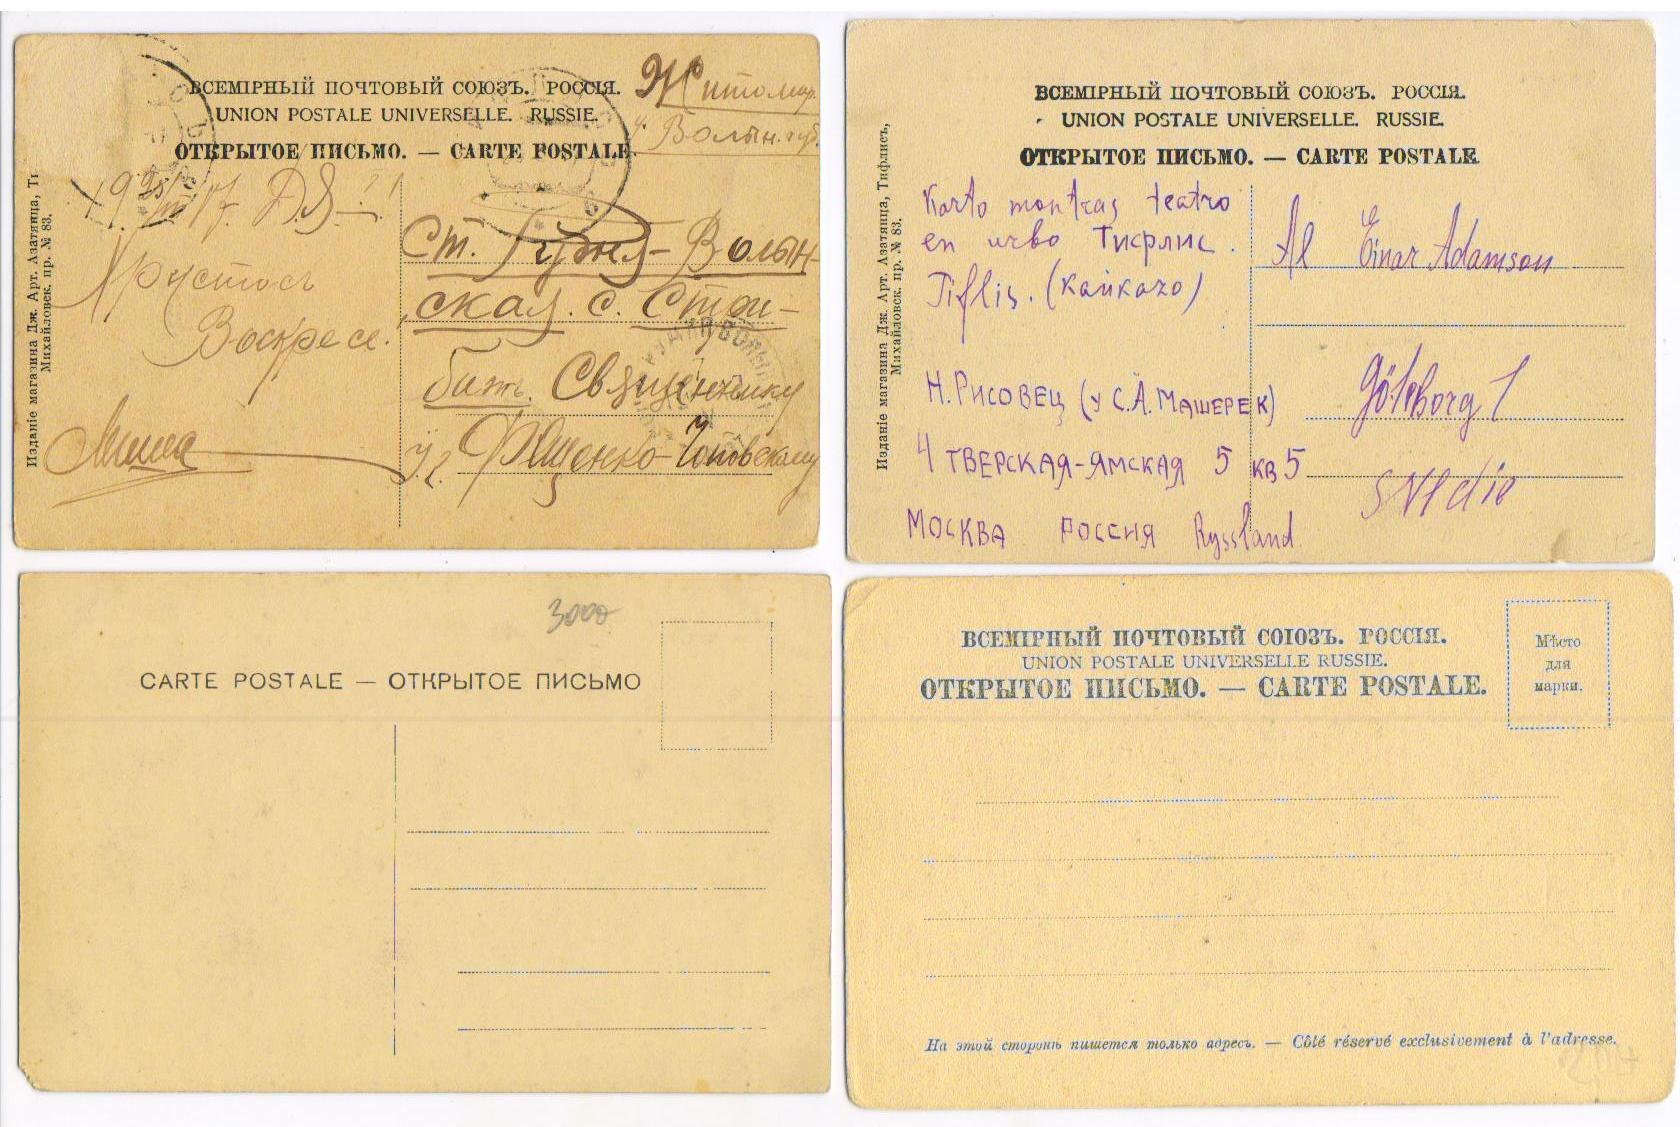 ВСЕМІРНЫЙ ПОЧТОВЫЙ СОЮЗЪ. РОССІЯ.
UNION POSTALE UNIVERSELLE. RUSSIE.
ОТКРЫТОЕ ПИСЬМО. — CARTE POSTALE
Житомир.
Волын. губ.
Изданіе магазина Дж. Арт. Азатянца, Ти
Михайловск. пр. № 83.
Христосъ
Воскресе.
Миша
Ст. Рудня-Волын-
ская. с.
Священнику
ВСЕМІРНЫЙ ПОЧТОВЫЙ СОЮЗЪ. РОССІЯ.
UNION POSTALE UNIVERSELLE. RUSSIE.
ОТКРЫТОЕ ПИСЬМО. — CARTE POSTALE.
Изданіе магазина Дж. Арт. Азатянца, Тифлисъ,
Михайловск. пр. № 83.
Karto montras teatro
en urbo Тифлис.
Tiflis. (Kaŭkazo)
Н. Рисовец (у С.А. Машерек)
4 Тверская-Ямская 5 кв 5
Москва Россия Ryssland
Al Einar Adamson
Göteborg 1
Svedio
3000
CARTE POSTALE — ОТКРЫТОЕ ПИСЬМО
ВСЕМІРНЫЙ ПОЧТОВЫЙ СОЮЗЪ. РОССІЯ.
UNION POSTALE UNIVERSELLE RUSSIE.
ОТКРЫТОЕ ПИСЬМО. — CARTE POSTALE.
Мѣсто
для
марки.
На этой сторонѣ пишется только адресъ. — Côté réservé exclusivement à l'adresse.